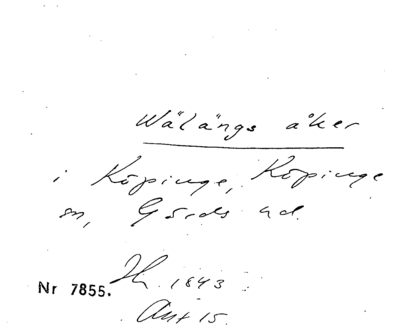 Wälängs åker
i Köpinge, Köpinge
sn, Gärds hd.
Nr 7855. Sk. 1843
Akt 15.